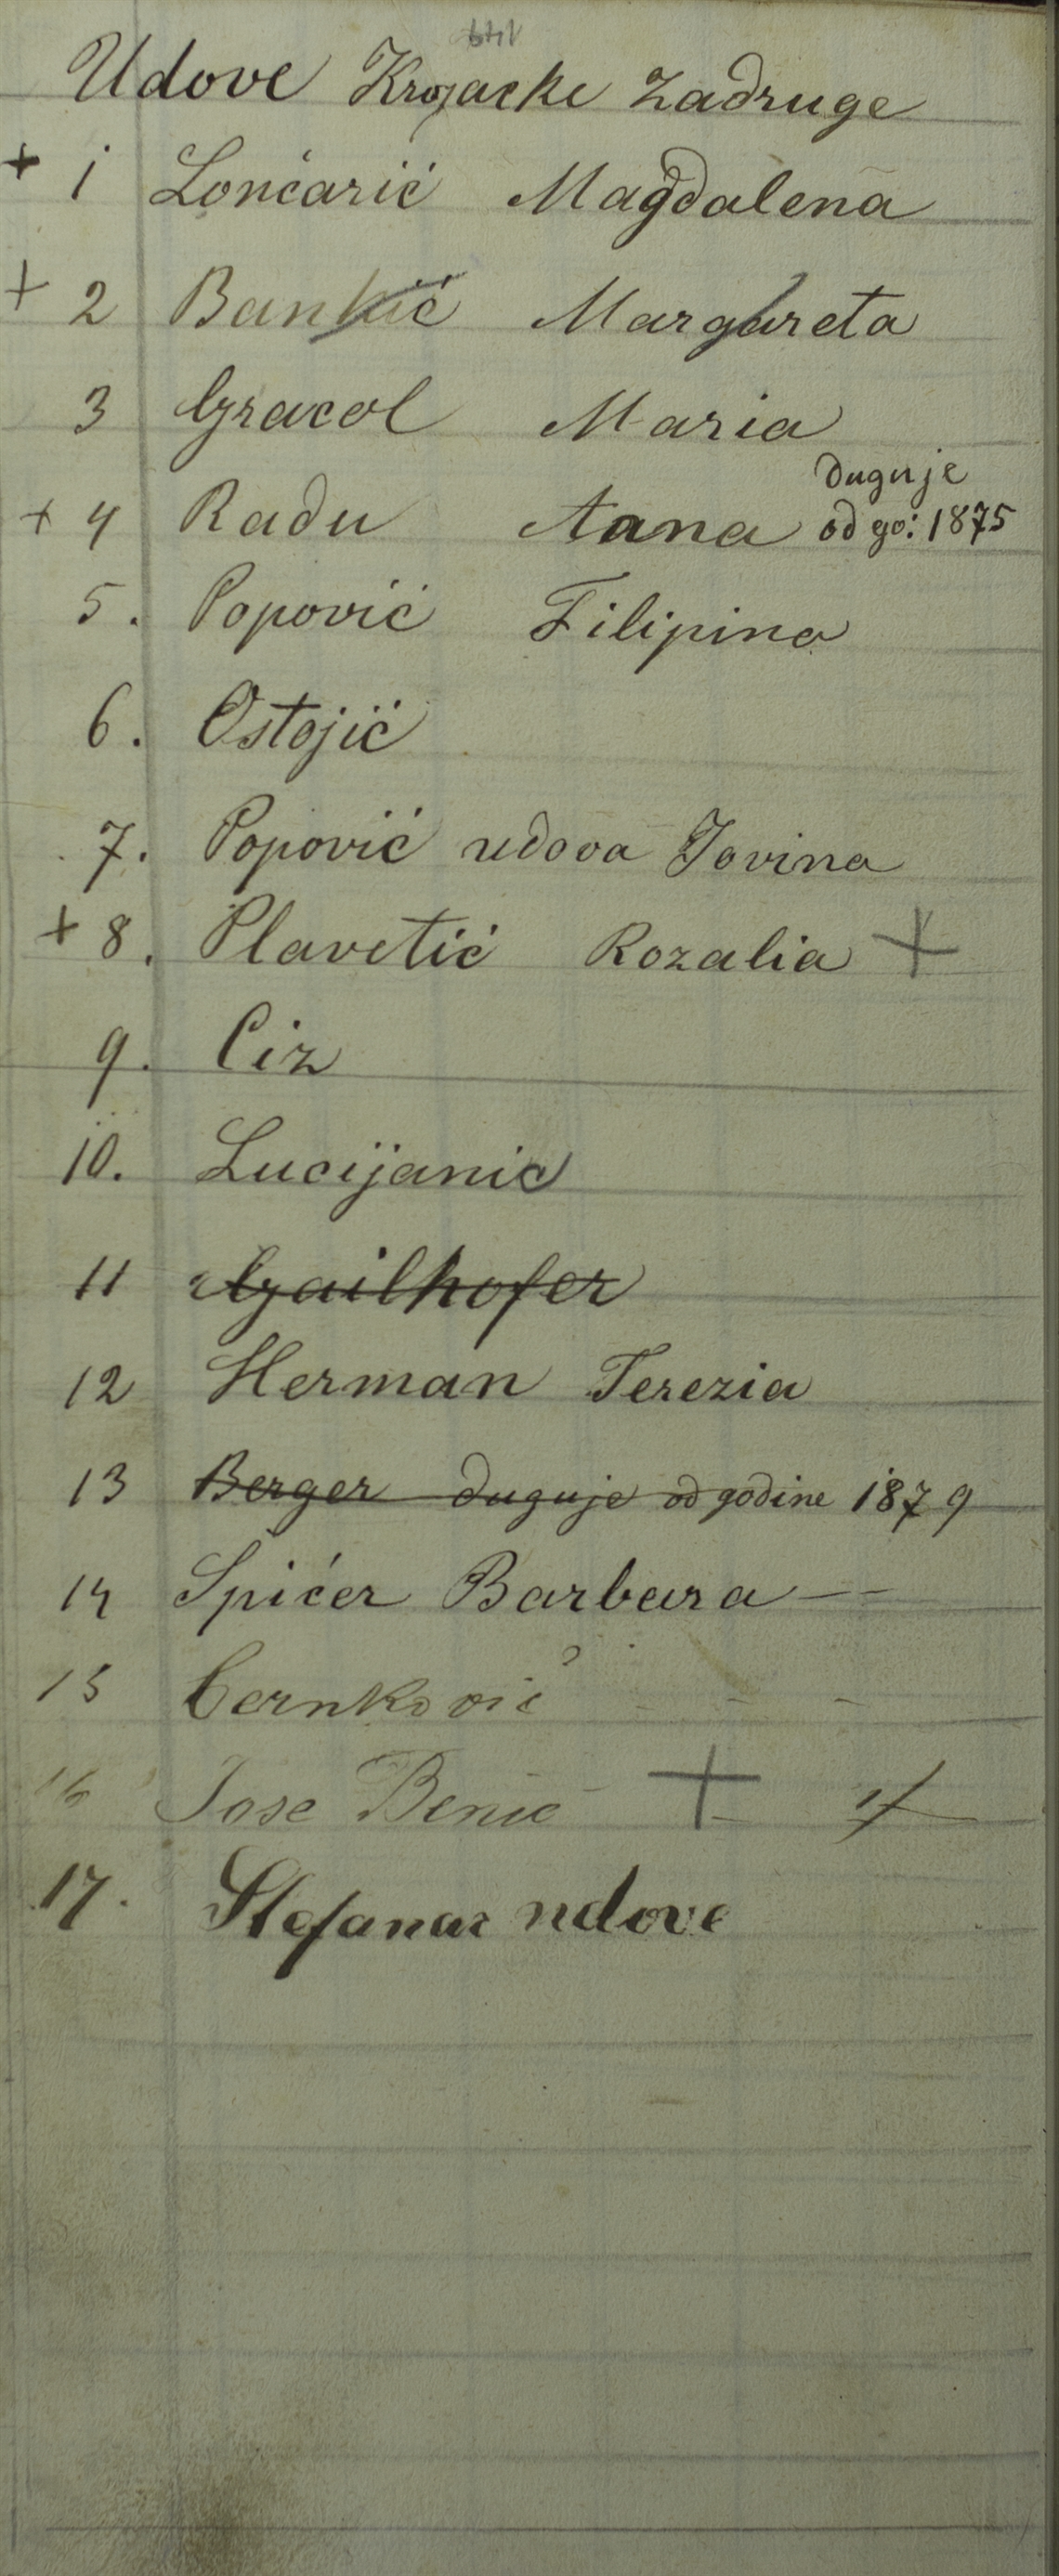 Udove Krojacke Zadruge
+ 1 Lončarić Magdalena
+ 2 Bankić Margareta
3 Gracol Maria
duguje
+ 4 Radu Anna od go: 1875
5. Popović Filipina
6. Ostojić
7. Popović udova Jovina
+ 8. Plavetić Rozalia +
9. Ciz
10. Lucijanic
11 Gailhofer
12 Herman Terezia
13 Berger duguje od godine 1879
14 Spićer Barbara —
15 Cernković - - -
16 Jose Benić +
17. Stefanac udove